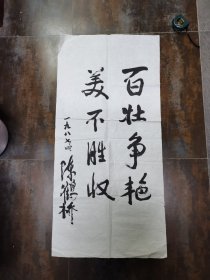 百壮争艳
美不胜收
一九八七年
陈鹤桥